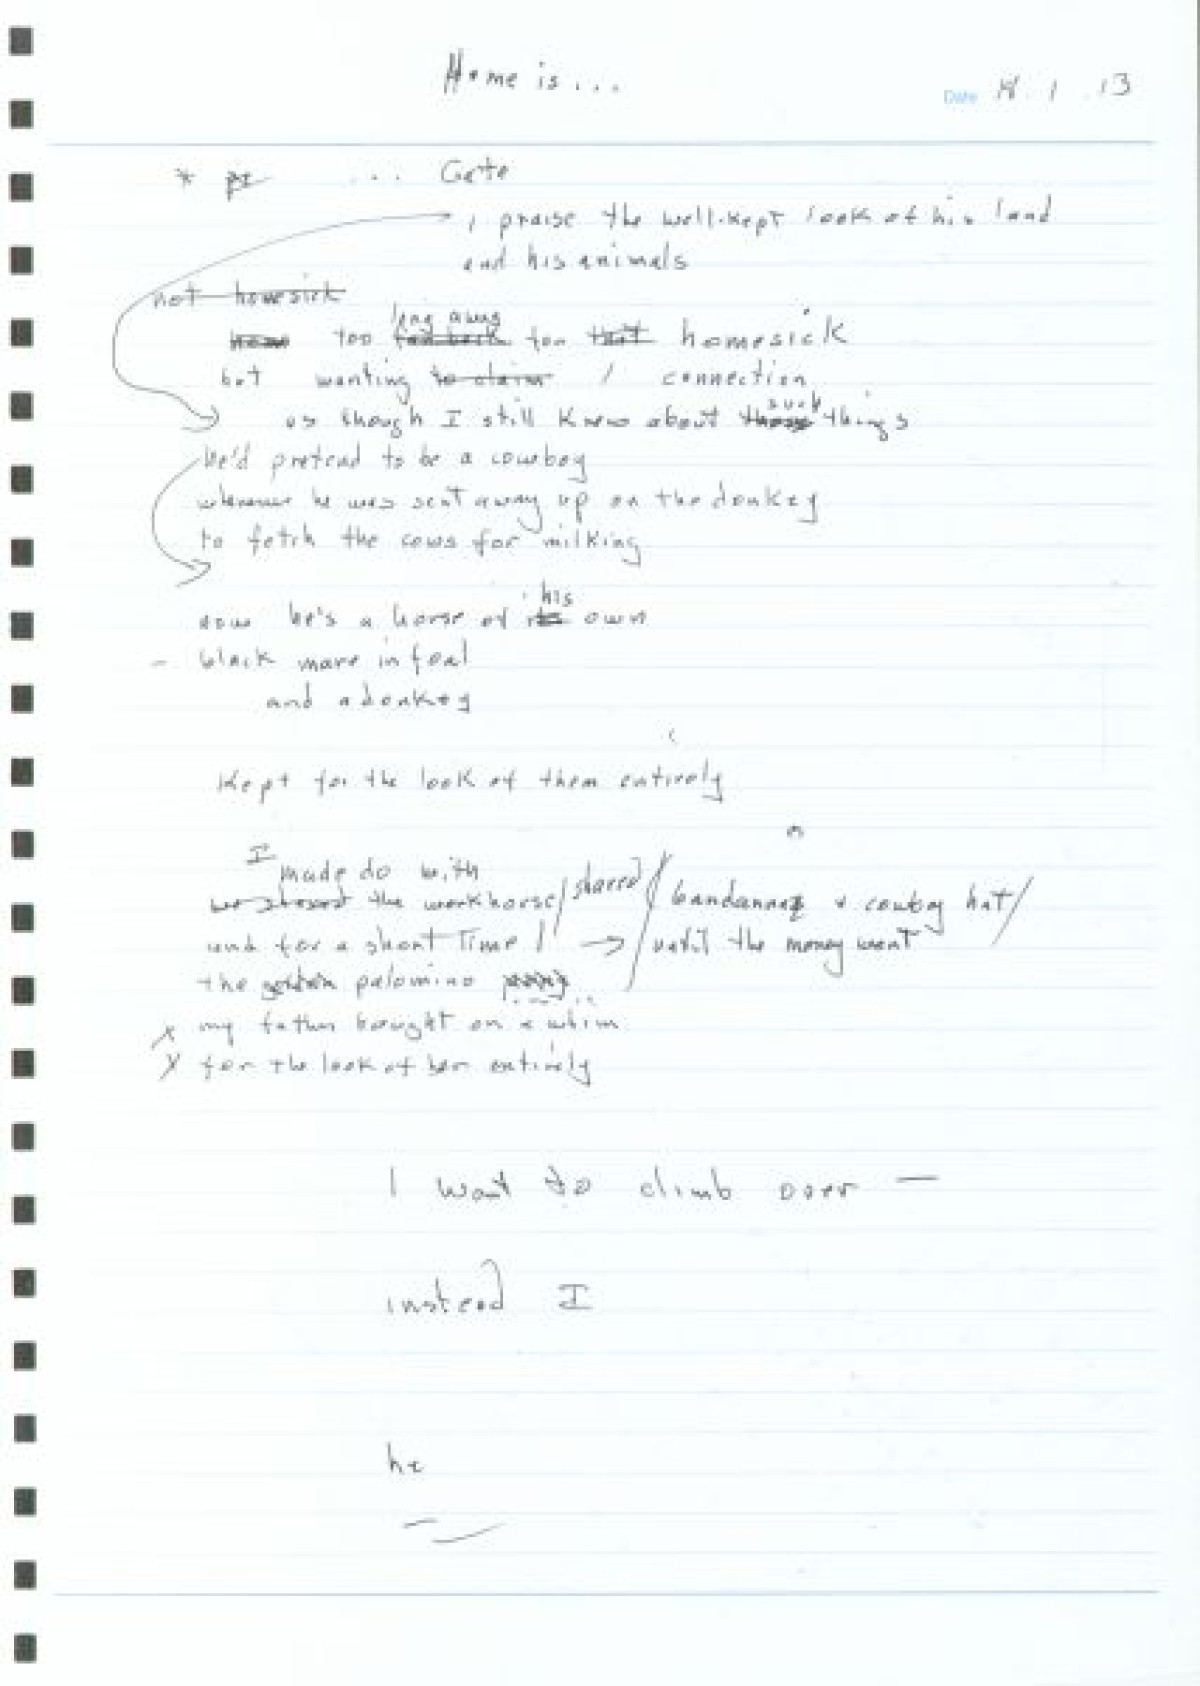 Home is...
Date 18.1.13
* ... Gate
I praise the well-kept look of his land
and his animals
not homesick
long away
too far back for that homesick
but wanting to claim / connection
such
as though I still knew about those things
he'd pretend to be a cowboy
whenever he was sent away up on the donkey
to fetch the cows for milking
his
now he's a horse of his own
- black mare in foal
and a donkey
Kept for the look of them entirely
I made do with
we shared the workhorse / shared / bandannas & cowboy hat /
and for a short time / → / until the money went
the golden palomino pony
x my father bought on a whim
x for the look of her entirely
I want to climb over —
instead I
he